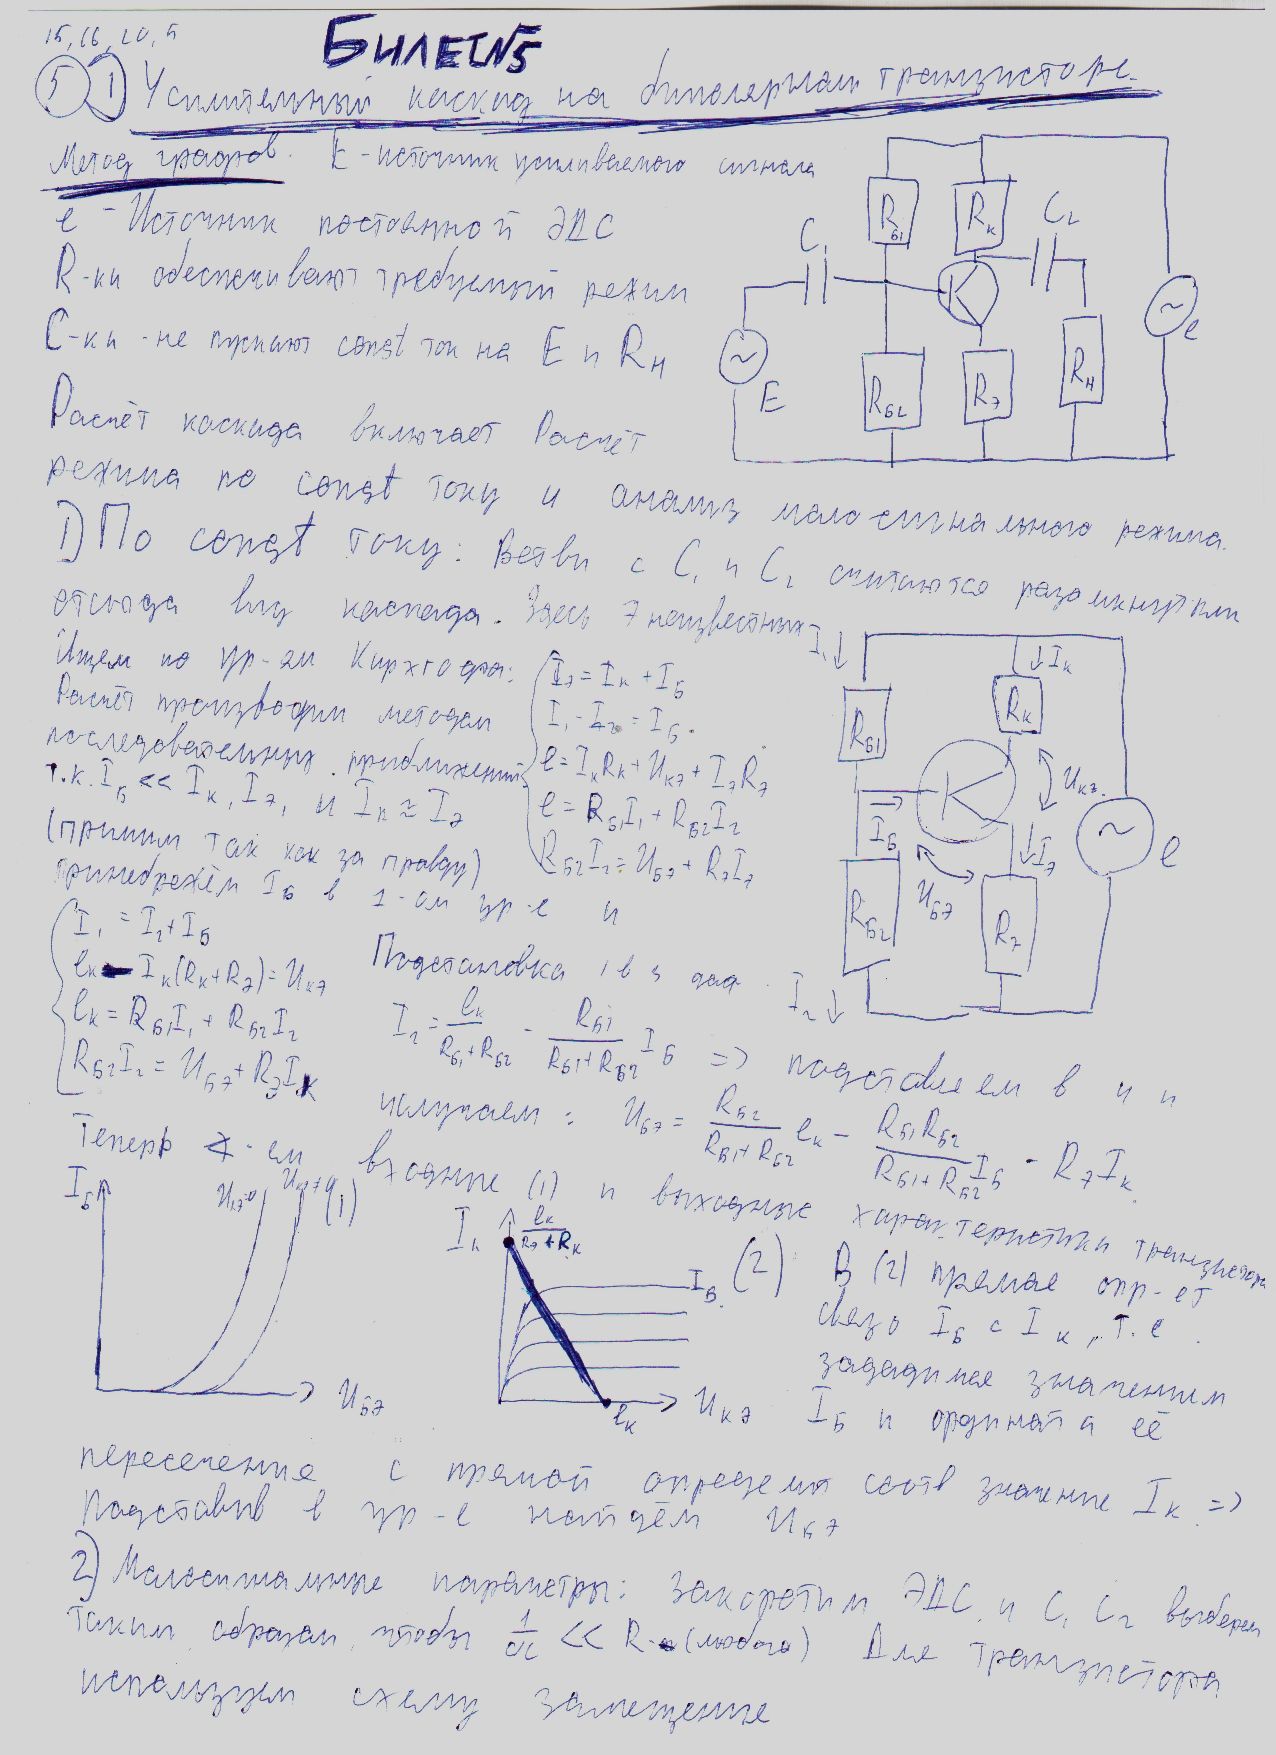 15, 16, 20, 5
БИЛЕТ №5
5 1 Усилительный каскад на биполярном транзисторе.
Метод графов. E - источник усиливаемого сигнала
e - Источник постоянной ЭДС
R-ки обеспечивают требуемый режим
C-ки - не пускают const ток на E и Rн
C1 RБ1 Rк C2
E RБ2 Rэ Rн ~ e
Расчёт каскада включает Расчёт
режима по const току и анализ малосигнального режима.
1) По const току: Ветви с C1 и C2 считаются разомкнутыми
отсюда вид каскада. Здесь 7 неизвестных
Ищем по ур-ям Кирхгофа:
Расчёт производим методом
последовательных приближений
т.к. IБ << Iк, Iэ, и Iк ≈ Iэ
(примем так как за правду)
пренебрежём IБ в 1-ом ур-е и
Iэ = Iк + IБ
I1 - I2 = IБ.
e = IкRк + Uкэ + IэRэ
e = RБ1I1 + RБ2I2
RБ2I2 = UБэ + RэIэ
I1 ↓ ↓ Iк
RБ1 Rк
Uкэ ~ e
IБ ↓ Iэ
UБэ
RБ2 Rэ
I2 ↓
I1 = I2 + IБ
eк - Iк(Rк + Rэ) = Uкэ
eк = RБ1I1 + RБ2I2
RБ2I2 = UБэ + RэIк
Подстановка 1 в 3 даёт
I2 = eк/(RБ1+RБ2) - RБ1/(RБ1+RБ2) IБ => подставляем в 4 и
получаем: UБэ = RБ2/(RБ1+RБ2) eк - RБ1RБ2/(RБ1+RБ2) IБ - RэIк
Теперь ∢-ем входные (1) и выходные характеристики транзистора
IБ Uкэ=0 Uкэ≠0 (1)
UБэ
Iк eк/(Rэ+Rк)
IБ (2)
eк Uкэ
В (2) прямая опр-ет
связь IБ с Iк, т.е.
зададимся значением
IБ и ордината её
пересечения с прямой определит соотв значение Iк =>
Подставив в ур-е найдём UБэ
2) Малосигнальные параметры: Закоротим ЭДС, и C1 C2 выберем
таким образом, чтобы 1/ωC << R-(любого) Для транзистора
используем схему замещения